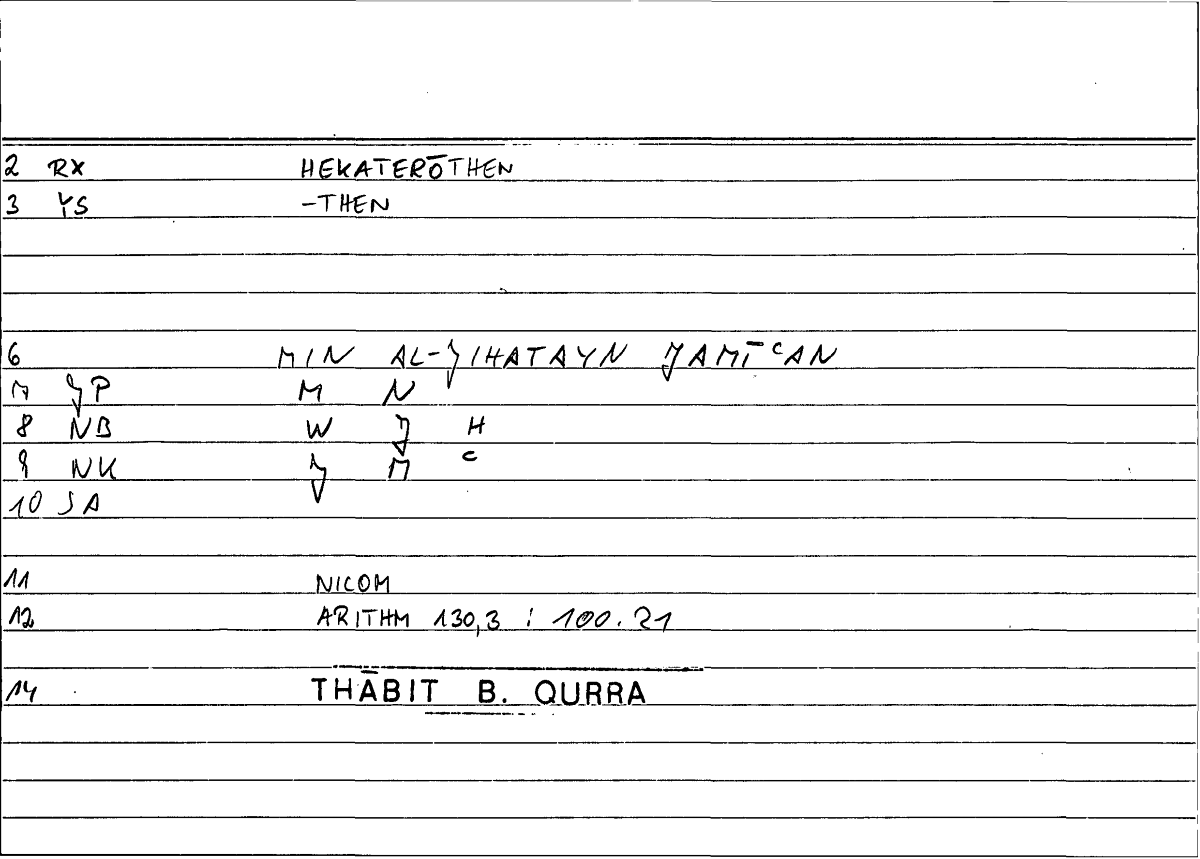 2 RX HEKATERŌTHEN
3 YS -THEN
6 MIN AL-JIHATAYN JAMĪʿAN
7 JP M N
8 NB W J H
9 NK J M ʿ
10 SA
11 NICOM
12 ARITHM 130,3 : 100.21
14 THĀBIT B. QURRA